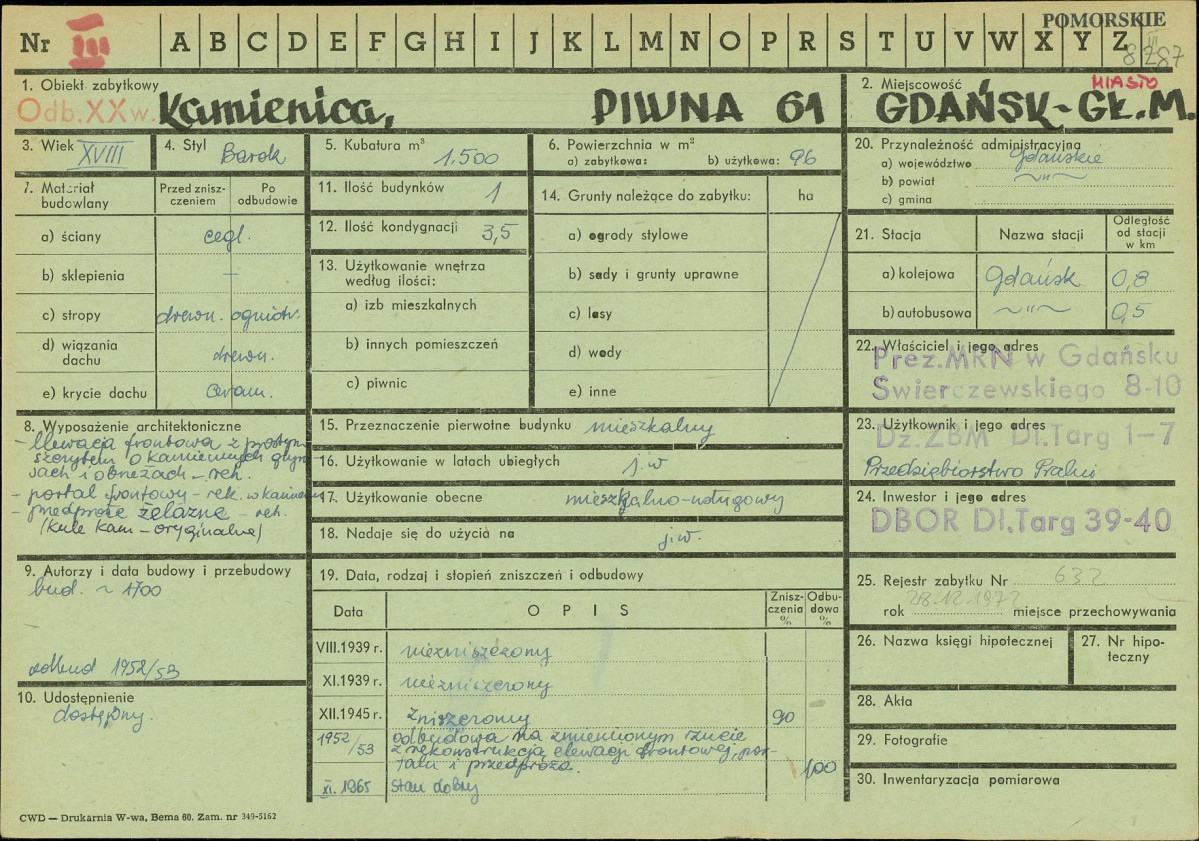 POMORSKIE
Nr III A B C D E F G H I J K L M N O P R S T U V W X Y Z
III
8287
1. Obiekt zabytkowy
Odb. XX w. Kamienica, PIWNA 61
2. Miejscowość MIASTO
GDAŃSK-GŁ.M.
3. Wiek XVIII
4. Styl Barok
5. Kubatura m³ 1.500
6. Powierzchnia w m²
a) zabytkowa: b) użytkowa: 96
7. Materiał budowlany
Przed zniszczeniem
Po odbudowie
a) ściany cegl.
b) sklepienia —
c) stropy drewn. ogniotr.
d) wiązania dachu drewn.
e) krycie dachu ceram.
11. Ilość budynków 1
12. Ilość kondygnacji 3,5
13. Użytkowanie wnętrza według ilości:
a) izb mieszkalnych
b) innych pomieszczeń
c) piwnic
14. Grunty należące do zabytku: ha
a) ogrody stylowe
b) sady i grunty uprawne
c) lasy
d) wody
e) inne
20. Przynależność administracyjna
a) województwo Gdańskie
b) powiat —"—
c) gmina
21. Stacja Nazwa stacji Odległość od stacji w km
a) kolejowa Gdańsk 0,8
b) autobusowa —"— 0,5
22. Właściciel i jego adres
Prez.MRN w Gdańsku
Świerczewskiego 8-10
23. Użytkownik i jego adres
Dz.ZBM Dl.Targ 1-7
Przedsiębiorstwo Pralni
24. Inwestor i jego adres
DBOR Dł.Targ 39-40
8. Wyposażenie architektoniczne
- Elewacja frontowa z prostym
szczytem o kamiennych gzym
sach i obrzeżach - rek.
- portal frontowy - rek. w kamieniu
- przedproże żelazne - rek.
(kule kam - oryginalne)
15. Przeznaczenie pierwotne budynku mieszkalny
16. Użytkowanie w latach ubiegłych j.w
17. Użytkowanie obecne mieszkalno-usługowy
18. Nadaje się do użycia na j.w.
9. Autorzy i data budowy i przebudowy
bud. ~ 1700
odbud 1952/53
10. Udostępnienie
dostępny.
19. Data, rodzaj i stopień zniszczeń i odbudowy
Data OPIS Zniszczenia % Odbudowa %
VIII.1939 r. niezniszczony
XI.1939 r. niezniszczony
XII.1945 r. zniszczony 90
1952/53 odbudowa na zmienionym rzucie
z rekonstrukcją elewacji frontowej, por
talu i przedproża. 100
XI. 1965 stan dobry
25. Rejestr zabytku Nr 632
rok 28.12.1972 miejsce przechowywania
26. Nazwa księgi hipotecznej
27. Nr hipoteczny
28. Akta
29. Fotografie
30. Inwentaryzacja pomiarowa
CWD — Drukarnia W-wa, Bema 60. Zam. nr 349-5162